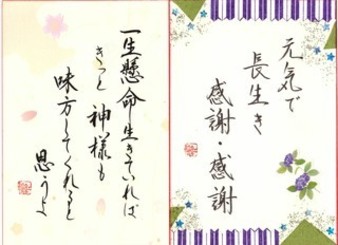 一生懸命生きていれば
きっと神様も
味方してくれると
思うよ
元気で
長生き
感謝・感謝